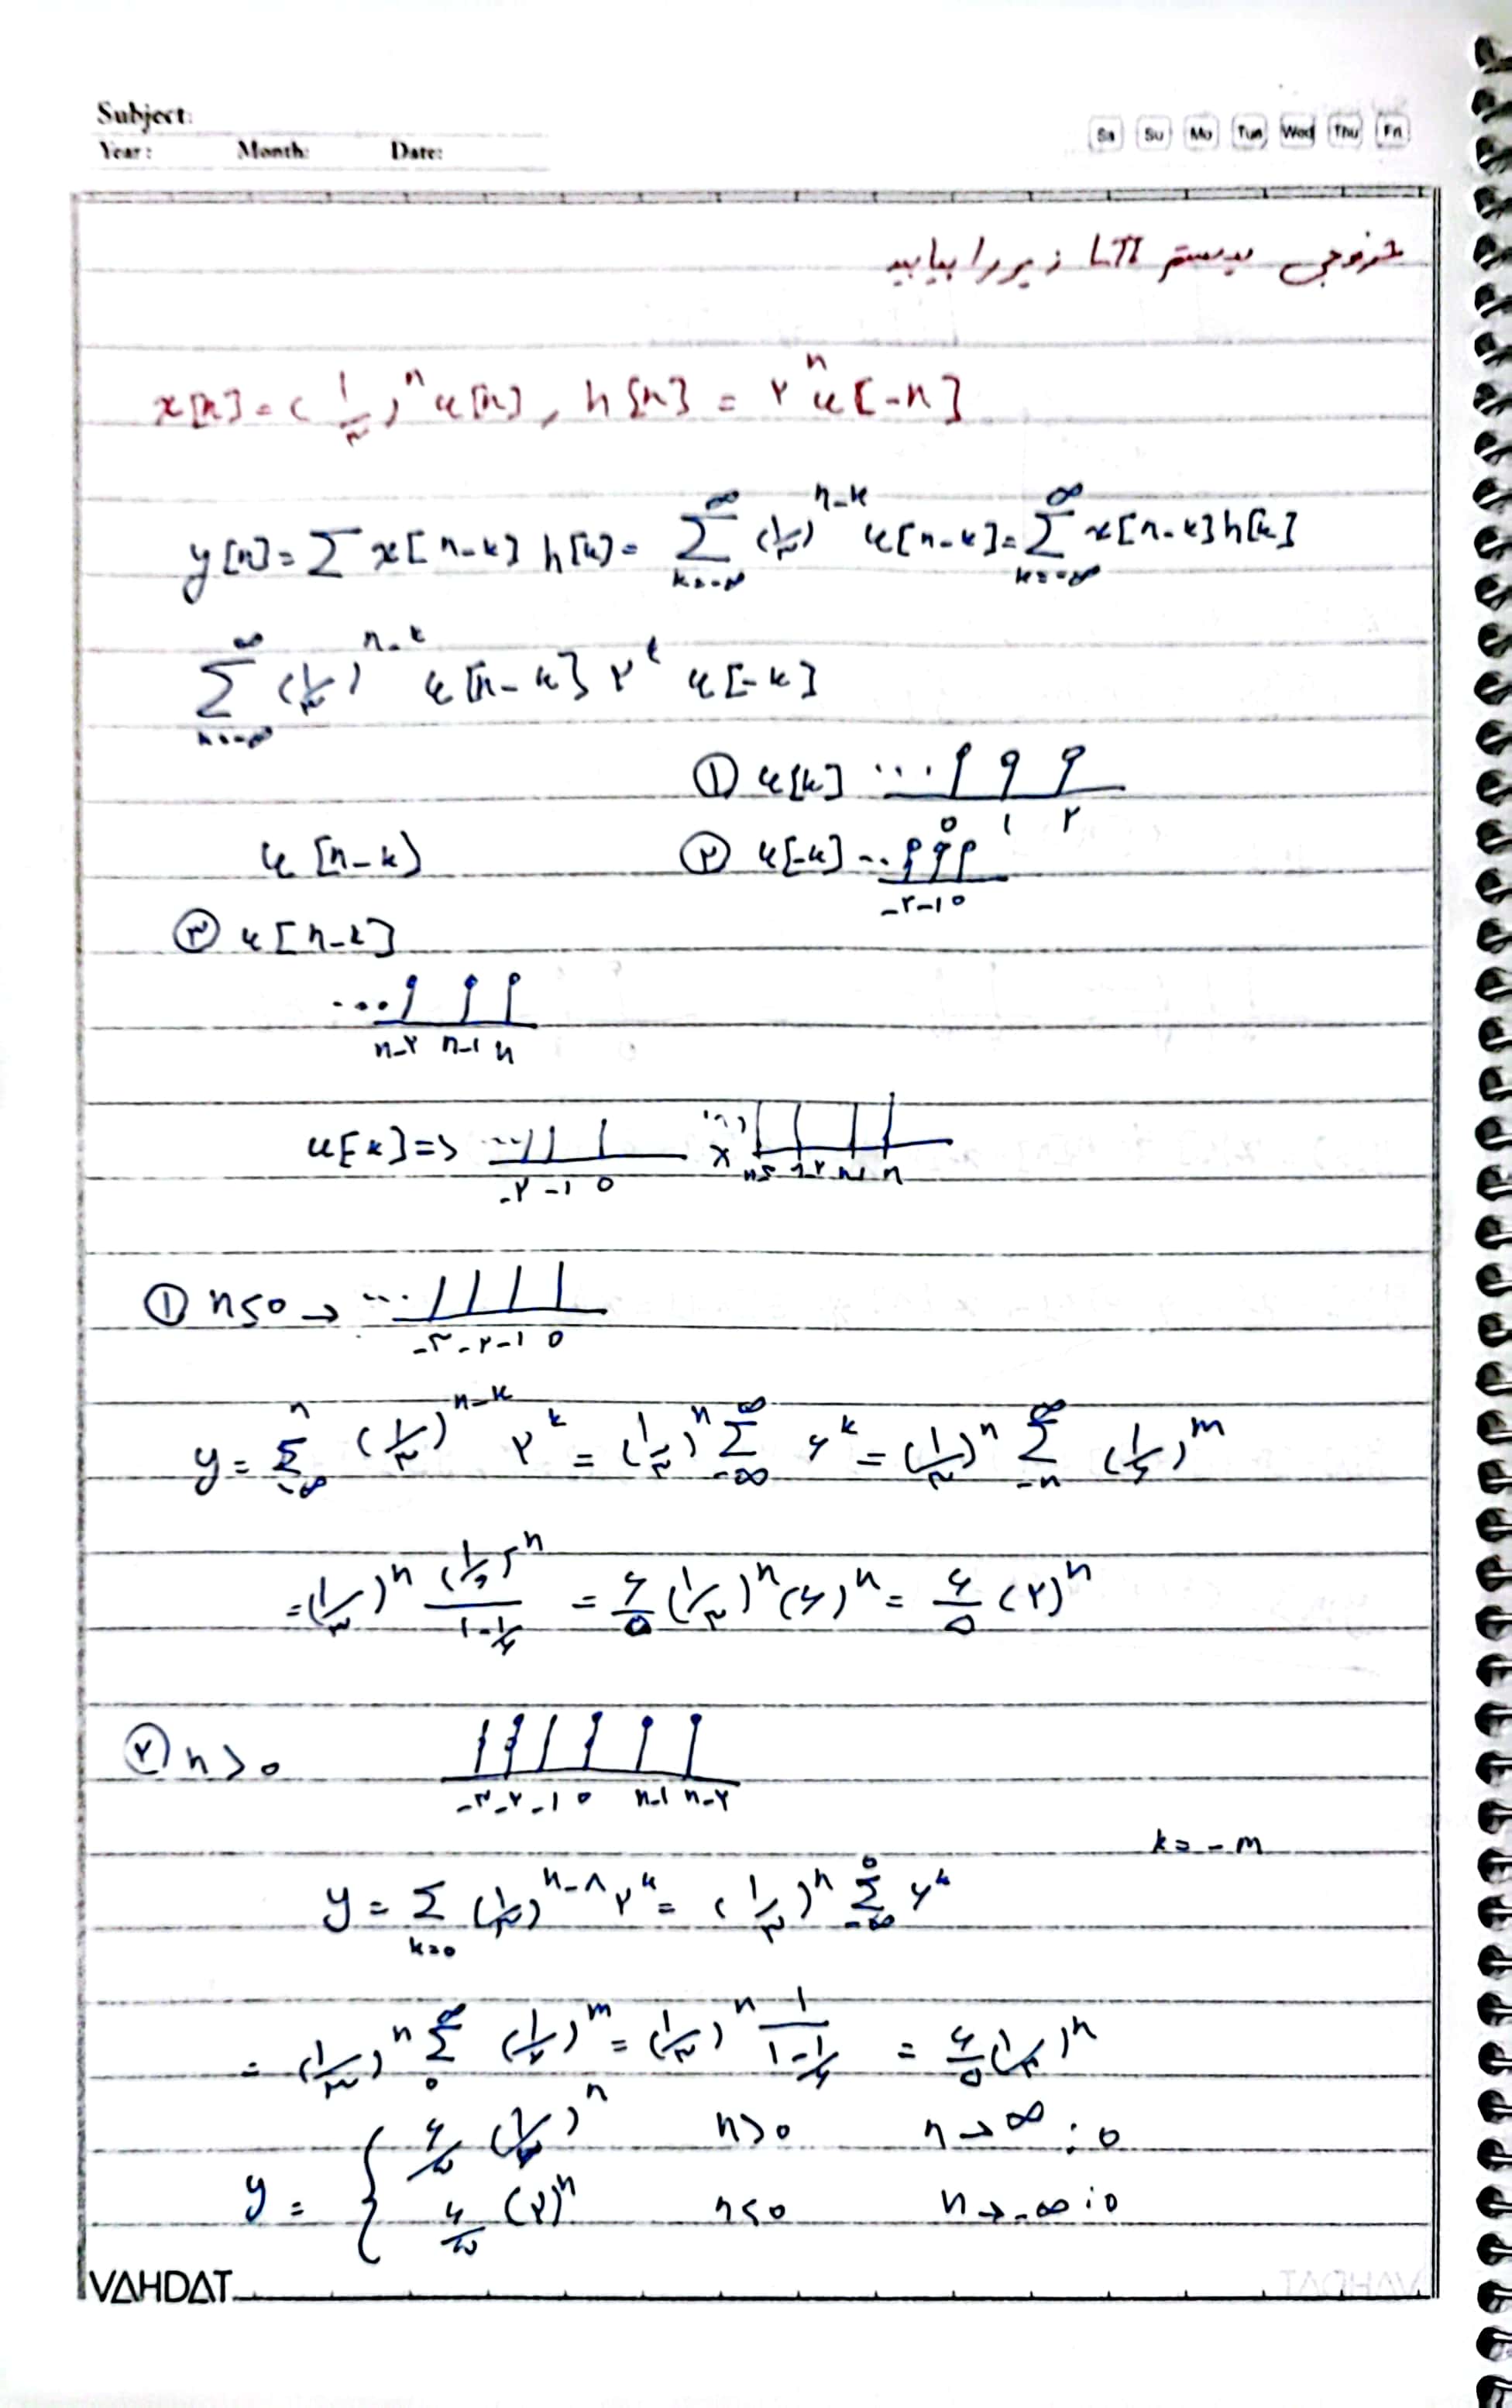 Subject:
Year: Month: Date:
Sa Su Mo Tue Wed Thu Fri
خروجی سیستم LTI زیر را بیابید
x[n] = (1/۳)^n u[n] , h[n] = ۲^n u[-n]
y[n] = Σ x[n-k] h[k] = Σ_{k=-∞}^{∞} (1/۳)^{n-k} u[n-k] = Σ_{k=-∞}^{∞} x[n-k] h[k]
Σ_{k=-∞}^{∞} (1/۳)^{n-k} u[n-k] ۲^k u[-k]
① u[k] ...
0 1 ۲
u[n-k) ② u[-k] ...
-۲ -1 0
③ u[n-k]
...
n-۲ n-1 n
u[k] => ... x ...
-۲ -1 0 n-۲ n-1 n
① n≤0 → ...
-۳ -۲ -1 0
y = Σ_{-∞}^{n} (1/۳)^{n-k} ۲^k = (1/۳)^n Σ_{-∞}^{∞} ۶^k = (1/۳)^n Σ_{-n}^{∞} (1/۶)^m
= (1/۳)^n (1/۶)^{-n} / (1-1/۶) = ۶/۵ (1/۳)^n (۶)^n = ۶/۵ (۲)^n
② n>0
-۳ -۲ -1 0 n-1 n-۲
k = -m
y = Σ_{k=0} (1/۳)^{n-k} ۲^k = (1/۳)^n Σ_{-∞}^{0} ۶^k
= (1/۳)^n Σ_{0}^{∞} (1/۶)^m = (1/۳)^n 1/(1-1/۶) = ۶/۵ (1/۳)^n
y = { ۶/۵ (1/۳)^n n>0 n→∞ : 0
۶/۵ (۲)^n n≤0 n→-∞ : 0
VAHDAT